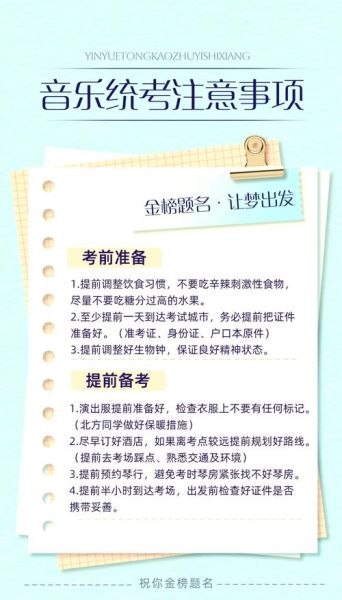 YINYUETONGKAOZHUYISHIXIANG
音乐统考注意事项
金榜题名·让梦出发
考前准备
1.提前调整饮食习惯，不要吃辛辣刺激性食物，
尽量不要吃糖分过高的水果。
2.至少提前一天到达考试城市，务必提前把证件
准备好。（准考证、身份证、户口本原件）
3.提前调整好生物钟，保证良好精神状态。
提前备考
1.演出服提前准备好，检查衣服上不要有任何标记。
（北方同学做好保暖措施）
2.尽早订好酒店，如果离考点较远提前规划好路线。
（提前去考场踩点、熟悉交通及环境）
3.提前预约琴行，避免考时琴房紧张找不好琴房。
4.提前半小时到达考场，出发前检查好证件是否
携带妥善。
祝你金榜题名